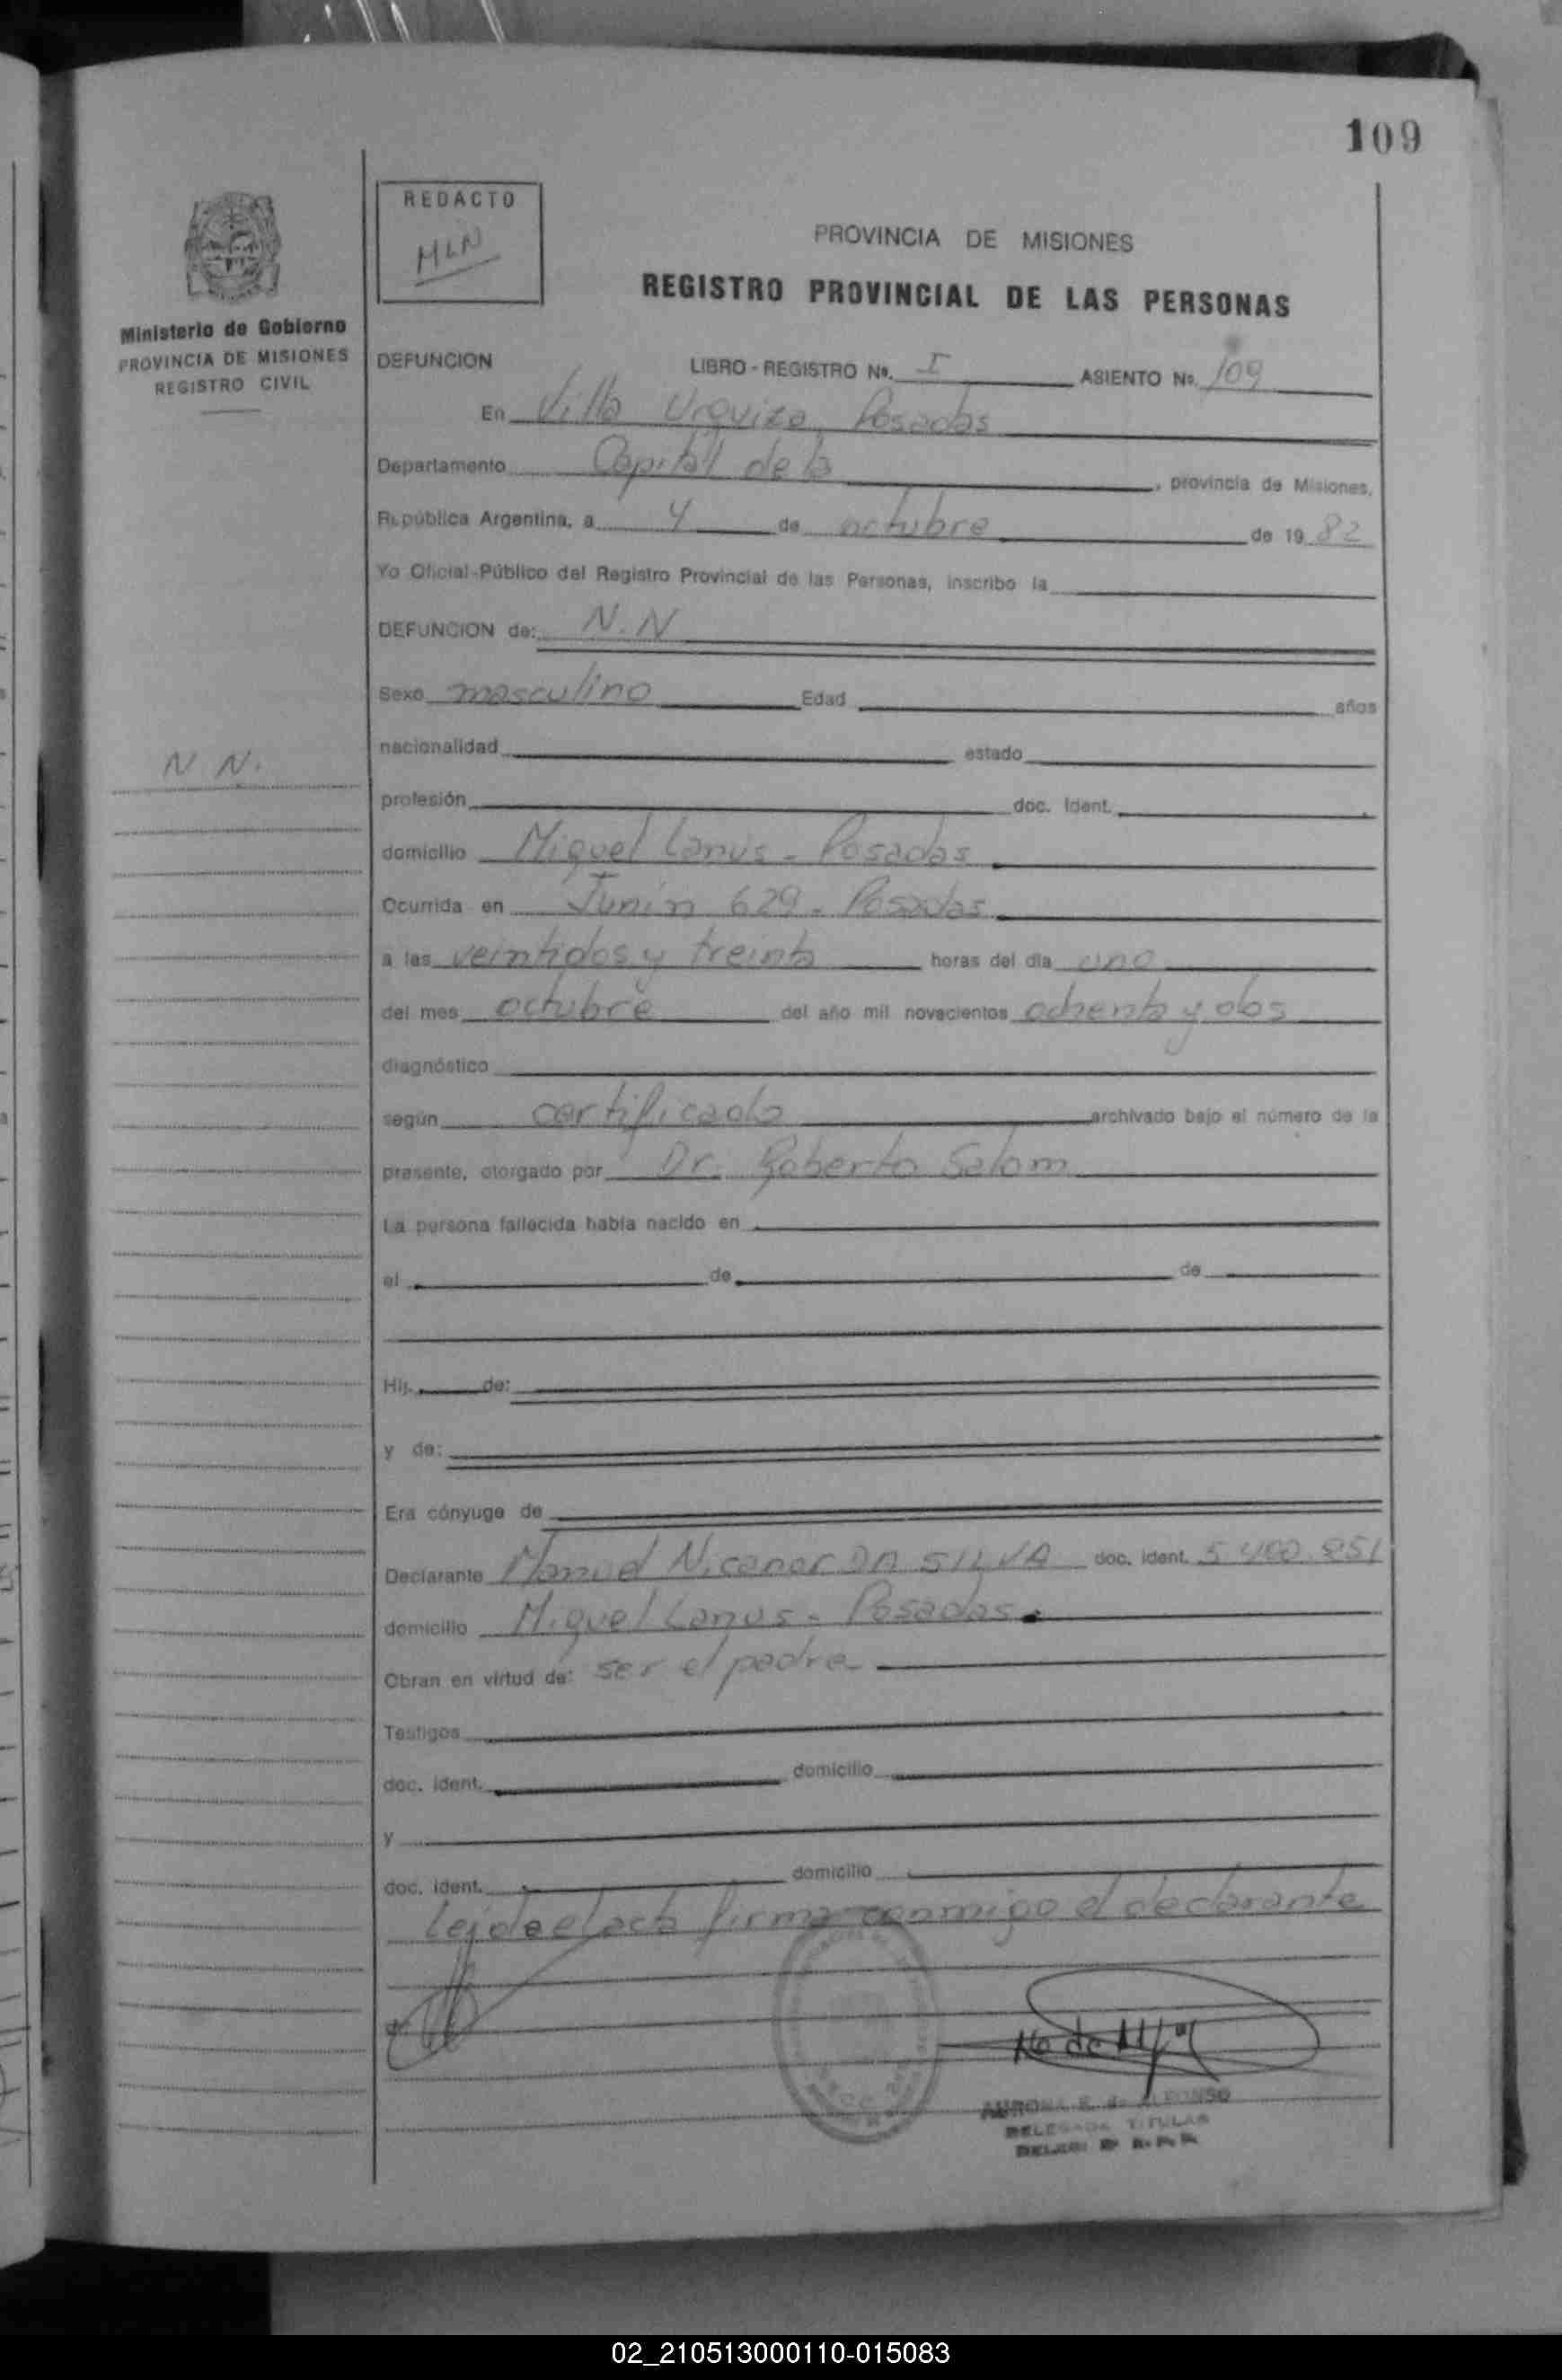 109
REDACTO
MLN
PROVINCIA DE MISIONES
REGISTRO PROVINCIAL DE LAS PERSONAS
Ministerio de Gobierno
PROVINCIA DE MISIONES
REGISTRO CIVIL
DEFUNCION LIBRO - REGISTRO No. I ASIENTO No. 109
En Villa Urquiza Posadas
Departamento Capital de la , provincia de Misiones,
República Argentina, a 4 de octubre de 19 82
Yo Oficial Público del Registro Provincial de las Personas, inscribo la
DEFUNCION de: N.N
Sexo masculino Edad años
nacionalidad estado
N N.
profesión doc. Ident.
domicilio Miguel Lanus - Posadas
Ocurrida en Junin 629 - Posadas
a las veintidos y treinta horas del día uno
del mes octubre del año mil novecientos ochenta y dos
diagnóstico
según certificado archivado bajo el número de la
presente, otorgado por Dr. Roberto Salom
La persona fallecida había nacido en
el de de
Hij de:
y de:
Era cónyuge de
Declarante Manuel Nicanor DA SILVA doc. ident. 5.400.851
domicilio Miguel Lanus - Posadas.
Obran en virtud de: ser el padre
Testigos
doc. ident. domicilio
y
doc. ident. domicilio
Leida el acta firma conmigo el declarante
AURORA E. de ALFONSO
DELEGADA TITULAR
02_210513000110-015083